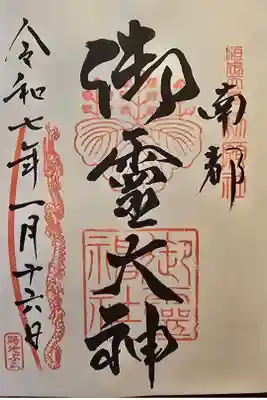 南都
御靈大神
令和七年一月十六日
御靈神社